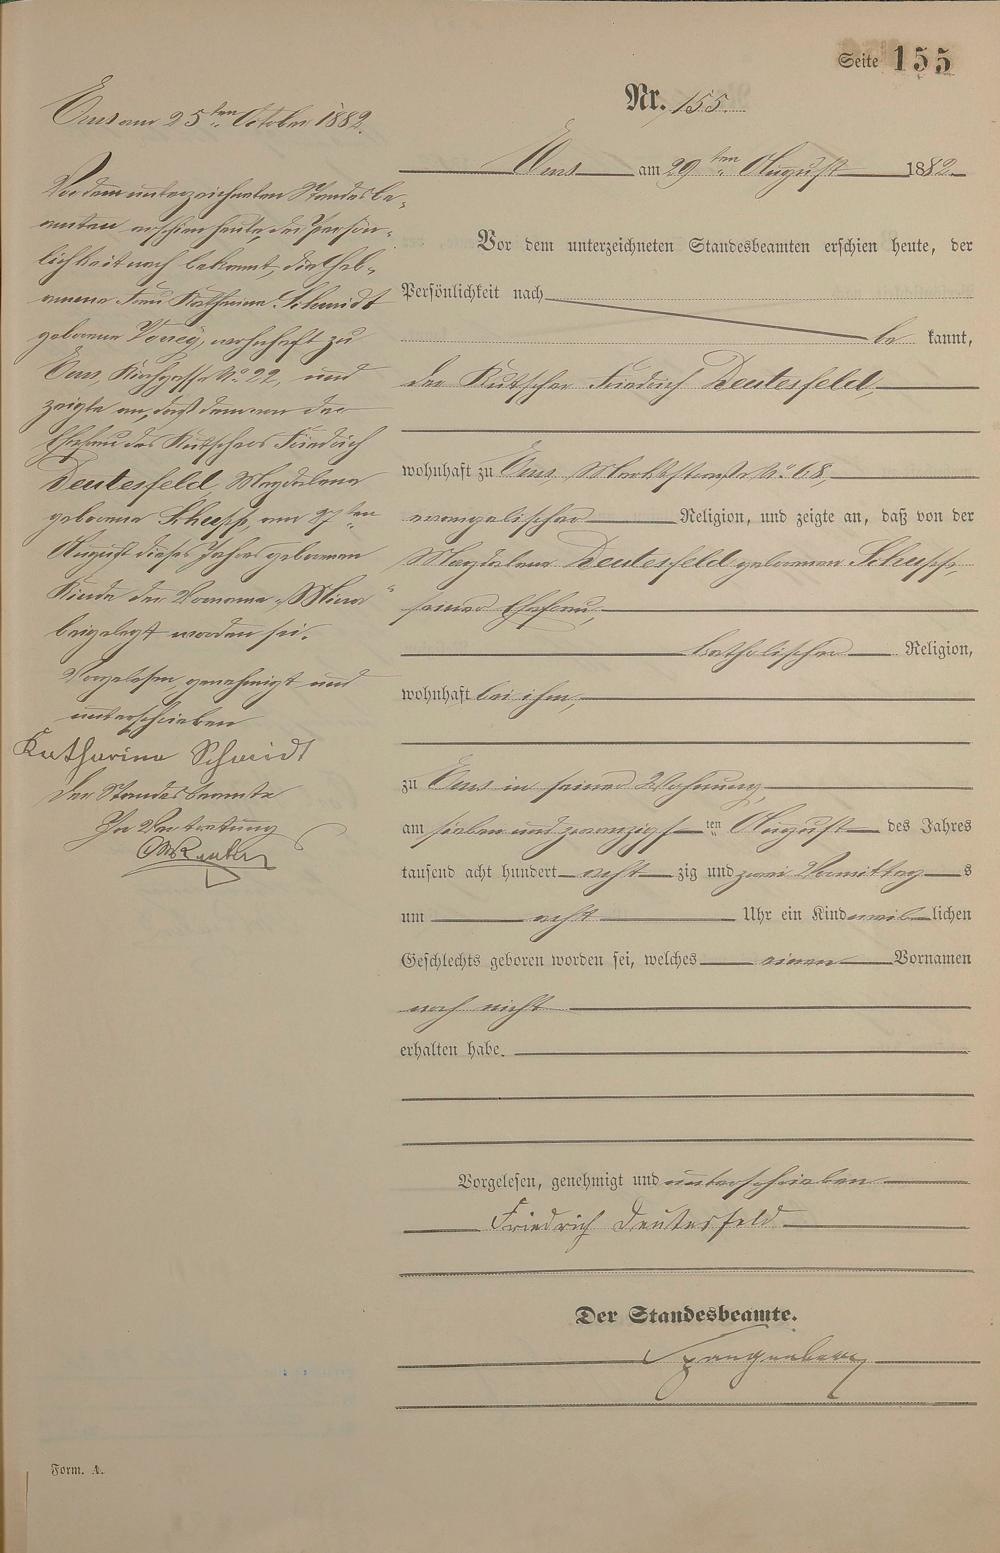 Seite 155
Nr. 155.
Ems am 29ten August 1882.
Vor dem unterzeichneten Standesbeamten erschien heute, der
Persönlichkeit nach
be kannt,
der Kutscher Friedrich Deutesfeld,
wohnhaft zu Ems, Marktstraße No. 68,
evangelischer Religion, und zeigte an, daß von der
Magdalena Deutesfeld geborenen Schupp,
seiner Ehefrau,
katholischer Religion,
wohnhaft bei ihm,
zu Ems in seiner Wohnung,
am sieben und zwanzigsten August des Jahres
tausend acht hundert acht zig und zwei Vormittag s
um acht Uhr ein Kind weib lichen
Geschlechts geboren worden sei, welches einen Vornamen
noch nicht
erhalten habe.
Vorgelesen, genehmigt und unterschrieben
Friedrich Deutesfeld
Der Standesbeamte.
Spangenberg
Ems am 25ten October 1882.
Vor dem unterzeichneten Standesbe-
amten erschien heute, der Persön-
lichkeit nach bekannt, die Heb-
amme Frau Katharina Schmidt
geborene, wohnhaft zu
Ems, Kirchgasse No. 22, und
zeigte an, daß dem von der
Ehefrau des Kutschers Friedrich
Deutesfeld, Magdalena
geborene Schupp, am 27ten
August dieses Jahres geborenen
Kinde der Vorname „Mina“
beigelegt worden sei.
Vorgelesen, genehmigt und
unterschrieben
Katharina Schmidt
Der Standesbeamte
In Vertretung
Form. A.